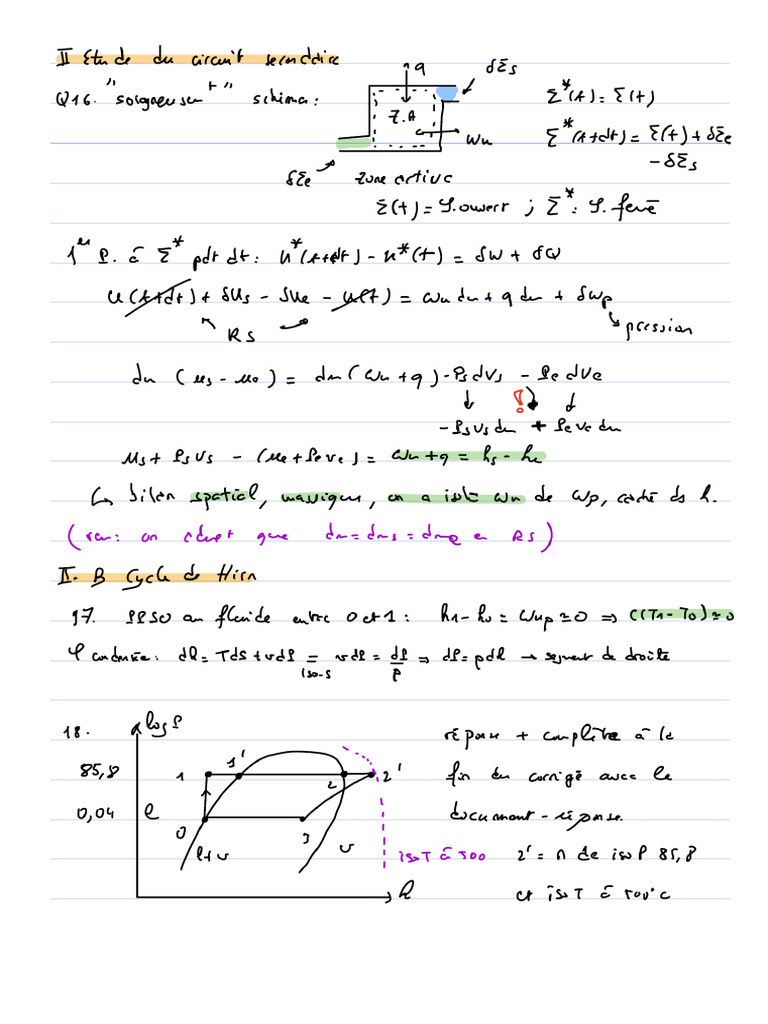 II Etude du circuit secondaire
Q16. "soigneusemt" schéma :
q
δΣs
Z.A
Wu
δΣe
zone active
Σ*(t) = Σ(t)
Σ*(t+dt) = Σ(t) + δΣe
- δΣs
Σ(t) = S. ouvert ; Σ* : S. fermé
1er P. à Σ* pdt dt : U*(t+dt) - U*(t) = δW + δQ
U(t+dt) + δUs - δUe - U(t) = wu dm + q dm + δWp
RS
pression
dm (us - ue) = dm (wu + q) - Ps dVs - Pe dVe
! - Ps vs dm + Pe ve dm
us + Ps vs - (ue + Pe ve) = wu + q = hs - he
↳ bilan spatial, massique, on a isolé wu de wp, caché ds h.
(rem : on admet que dm = dms = dme en RS)
II. B Cycle de Hirn
17. PPSO au fluide entre 0 et 1 : h1 - h0 = wup ≃ 0 ⇒ C(T1 - T0) ≃ 0
φ condensée : dh = Tds + vdP = vdP = dP/ρ ⇒ dP = ρdh → segment de droite
iso-s
18.
log P
85,8
0,04
1
1'
2
2'
l
0
3
l+v
v
isoT à 500
h
réponse + complète à la
fin du corrigé avec le
document-réponse.
2' = ∩ de isoP 85,8
et isoT à 500°C